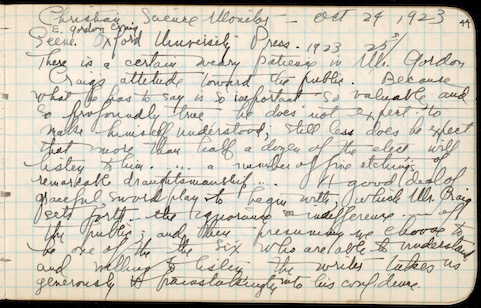 Christian Science Monitor — Oct 24, 1923
44
E. Gordon Craig
Scene. Oxford University Press. 1923 25/
There is a certain weary patience in Mr. Gordon
Craigs attitude toward the public. Because
what he has to say is so important so valuable and
so profoundly true he does not expect to
make himself understood, still less does he expect
that more than half a dozen of the elect will
listen to him. ..... a number of fine etchings of
remarkable draughtsmanship.... A good deal of
graceful sword play to begin with, which Mr. Craig
sets forth the ignorance indifference of
the public; and then presuming we choose to
be one of the the six who are able to understand
and willing to listen the writer takes us
generously & painstakingly into his confidence.